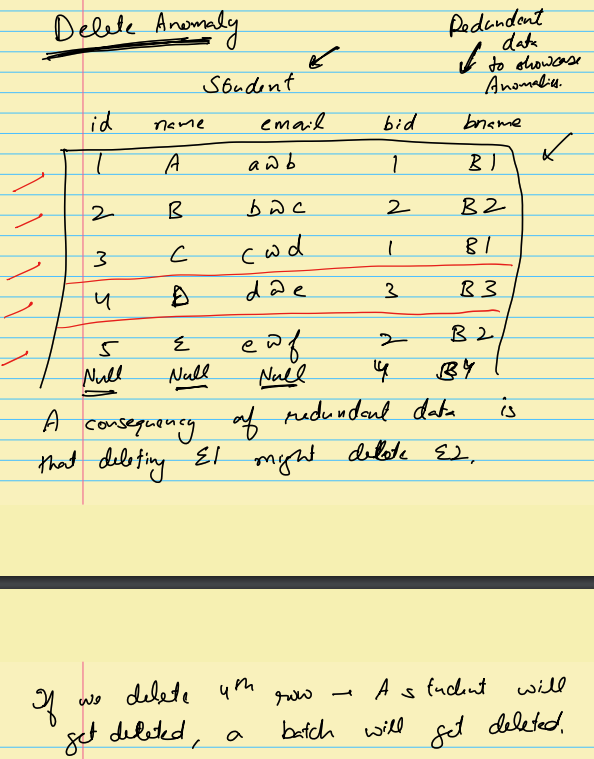 Delete Anomaly
Redundant
data
to showcase
Anomalies.
Student
id name email bid bname
1 A a@b 1 B1
2 B b@c 2 B2
3 C c@d 1 B1
4 D d@e 3 B3
5 E e@f 2 B2
Null Null Null 4 B4
A consequency of redundant data is
that deleting E1 might delete E2.
If we delete 4th row → A student will
get deleted, a batch will get deleted.